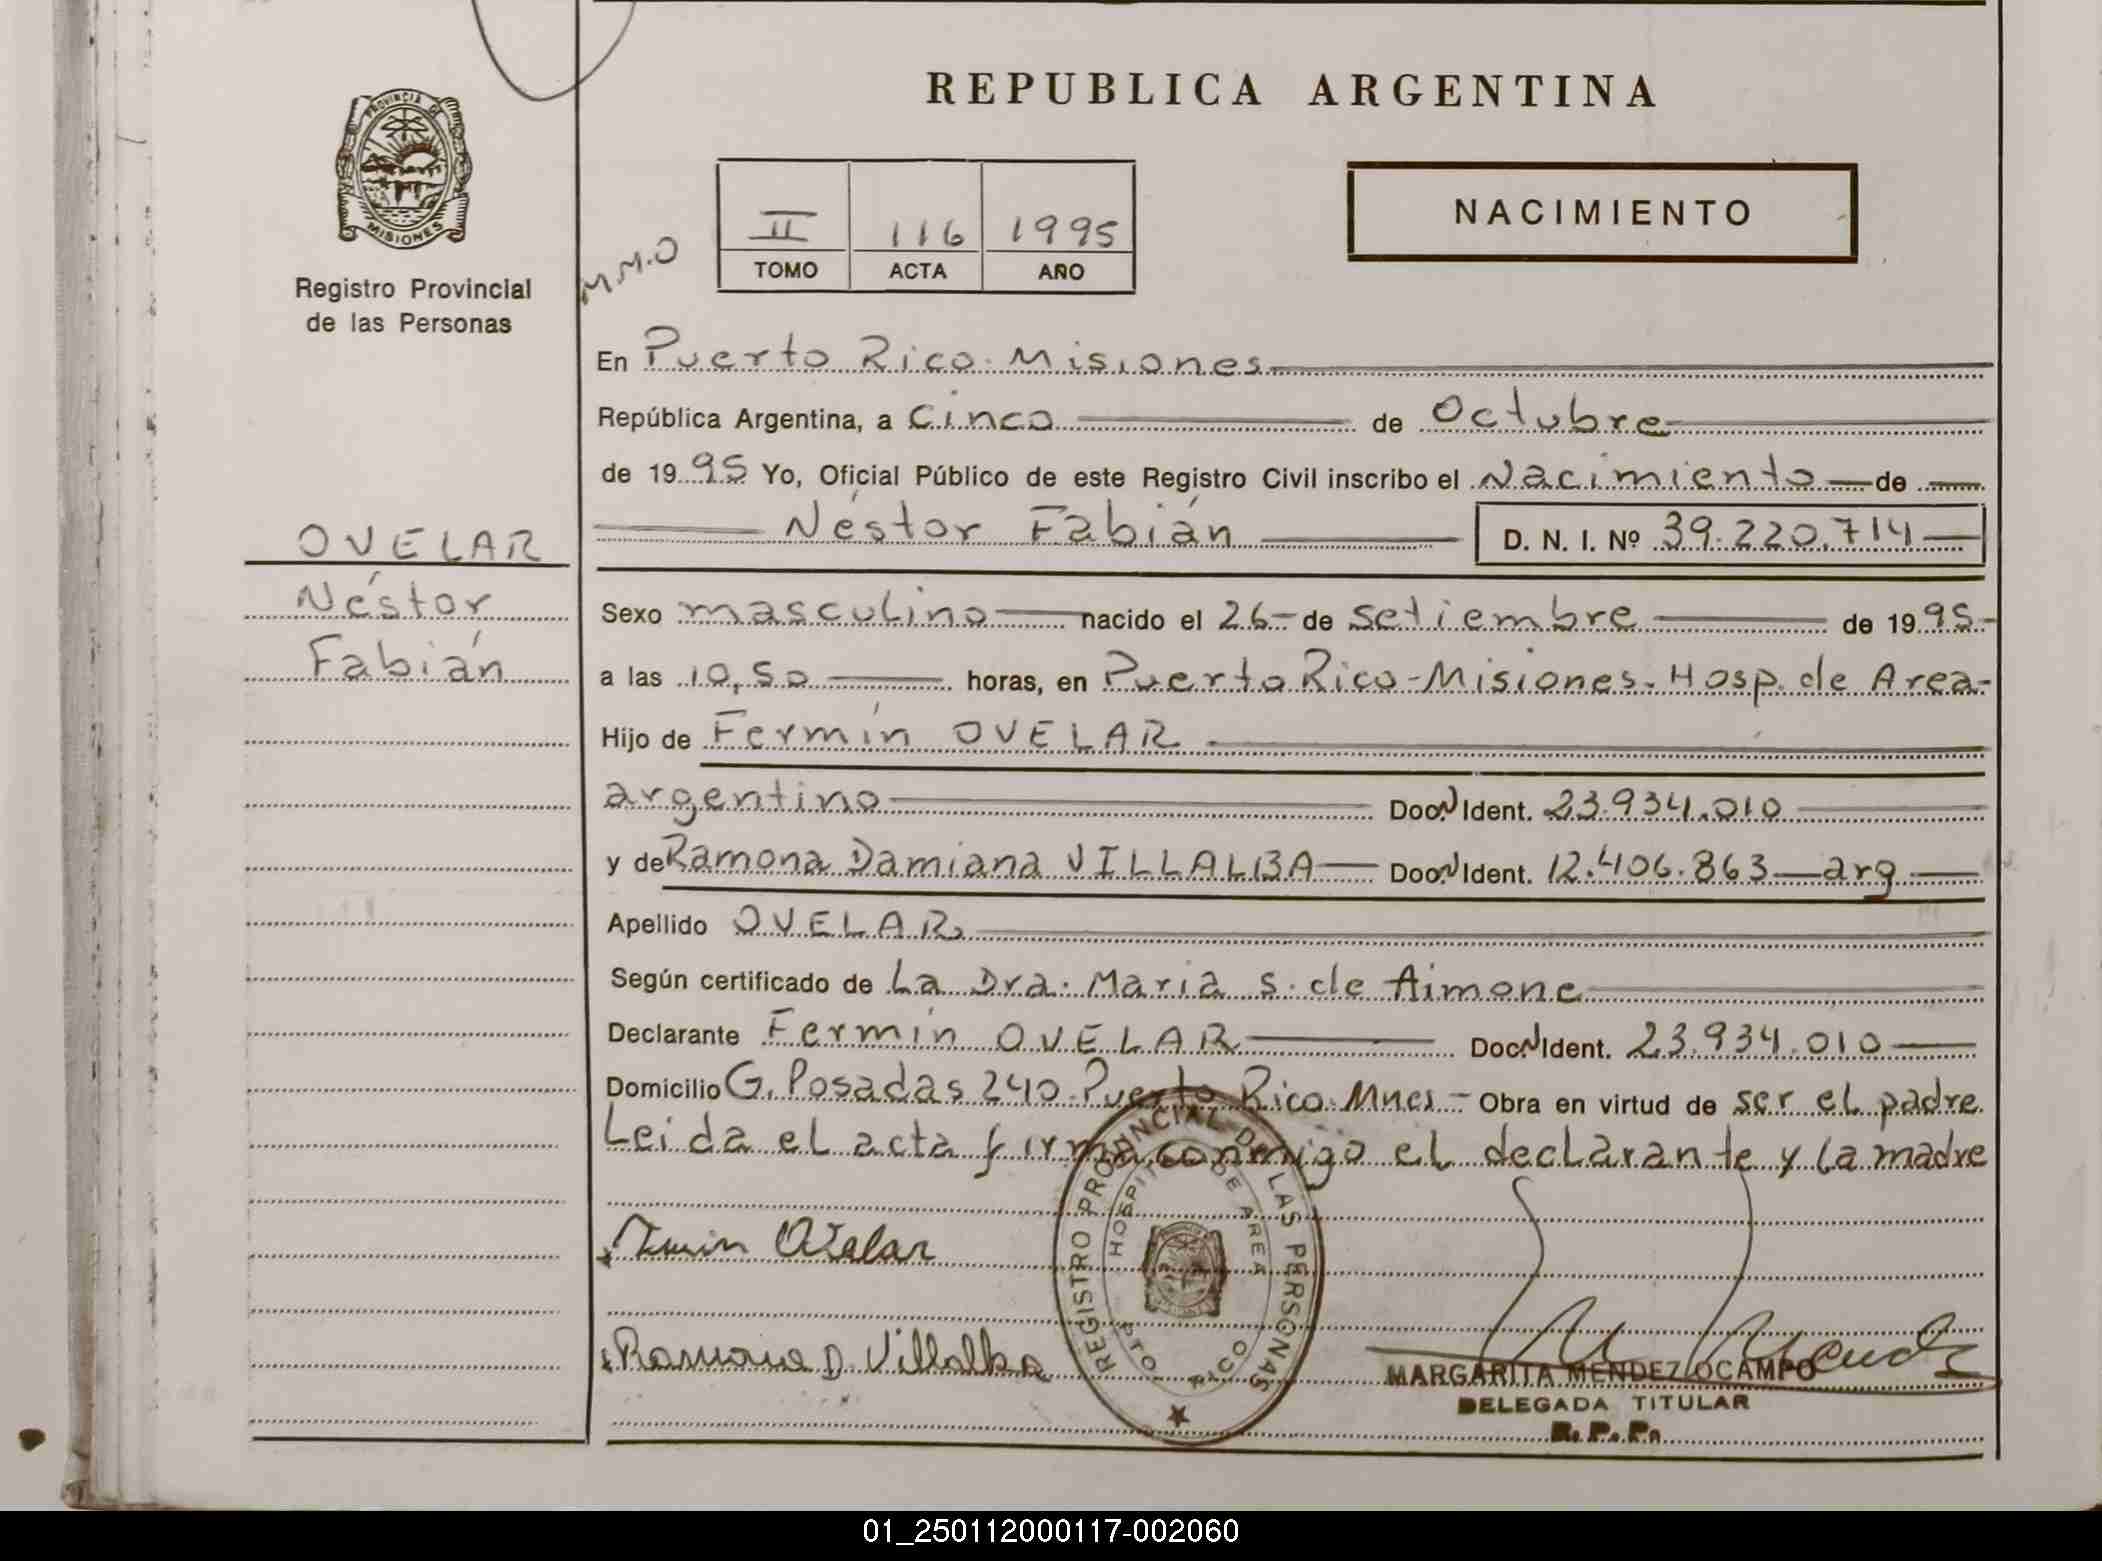 REPUBLICA ARGENTINA
PROVINCIA DE
MISIONES
Registro Provincial
de las Personas
M.M.O
II 116 1995
TOMO ACTA AÑO
NACIMIENTO
En Puerto Rico. Misiones
República Argentina, a Cinco de Octubre
de 1995 Yo, Oficial Público de este Registro Civil inscribo el Nacimiento de
Néstor Fabián D. N. I. Nº 39.220.714
OVELAR
Néstor
Fabián
Sexo masculino nacido el 26- de setiembre de 1995-
a las 10,50 horas, en Puerto Rico-Misiones. Hosp. de Area-
Hijo de Fermín OVELAR
argentino Doc.N Ident. 23.934.010
y de Ramona Damiana VILLALBA Doc.N Ident. 12.406.863 arg
Apellido OVELAR
Según certificado de La Dra. Maria S. de Aimone
Declarante Fermín OVELAR Doc.N Ident. 23.934.010
Domicilio G. Posadas 240. Puerto Rico. Mnes- Obra en virtud de ser el padre.
Leída el acta firma conmigo el declarante y la madre
REGISTRO PROVINCIAL DE LAS PERSONAS
HOSPITAL DE AREA
PTO. RICO
Fermin Ovelar
Ramona D. Villalba
MARGARITA MENDEZ OCAMPO
DELEGADA TITULAR
R. P. P.
01_250112000117-002060